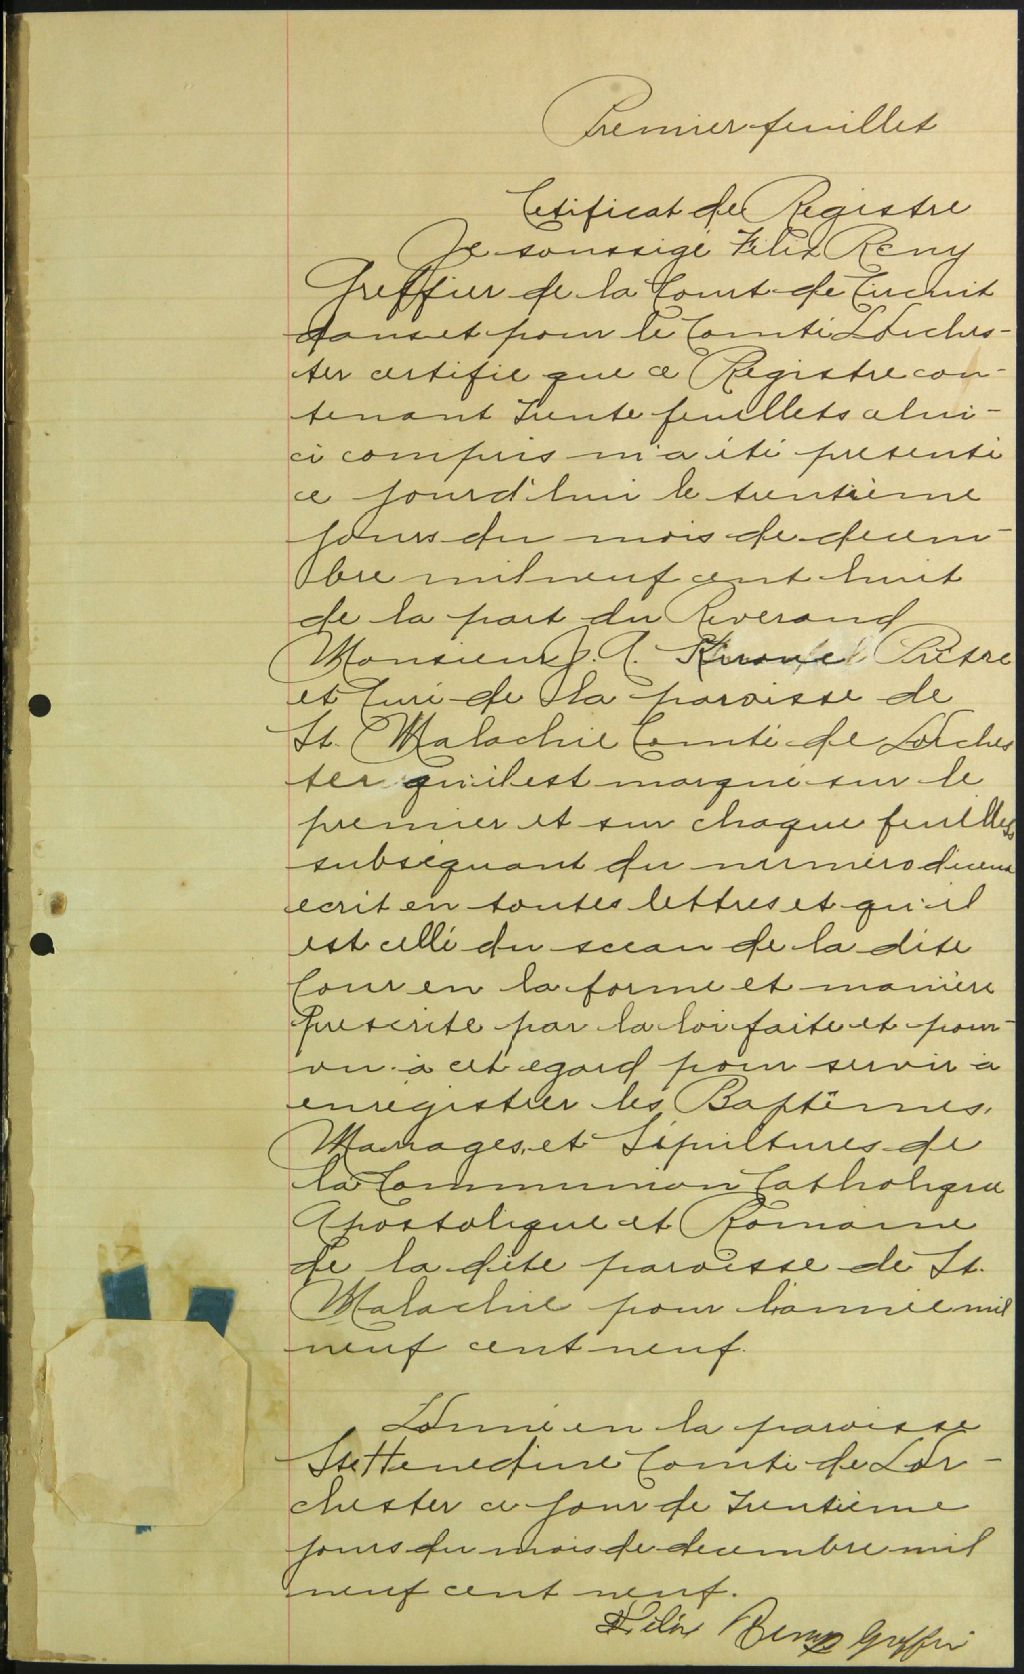 Premier feuillet
Cetificat de Registre
Je soussigé Felix Remy
Greffier de la Court de Circuit
dans et pour le Comté Dorches-
ter certifie que ce Registre con-
tenant trente feuillets celui-
ci compris m'a été presenté
ce jourd'hui le trentième
jours du mois de decem-
bre mil neuf cent huit
de la part du Reverand
Monsieur J. A. Kirouac Prêtre
et Curé de la paroisse de
St. Malachie Comté de Dorches
ter qu'il est marqué sur le
premier et sur chaque feuillets
subséquant du numéro d'iceux
ecrit en toutes lettres et qu'il
est cellé du sceau de la dite
Cour en la forme et manière
prescrite par la loi faite et pour-
vu à cet egard pour servir à
enrégistrer les Baptêmes,
Mariages, et Sépultures de
la Communion Catholique
Apostolique et Romaine
de la dite paroisse de St.
Malachie pour l'année mil
neuf cent neuf.
Donné en la paroisse
Ste Henedine Comté de Dor-
chester ce jour de trentième
jours du mois de decembre mil
neuf cent neuf.
Félix Remy Greffier